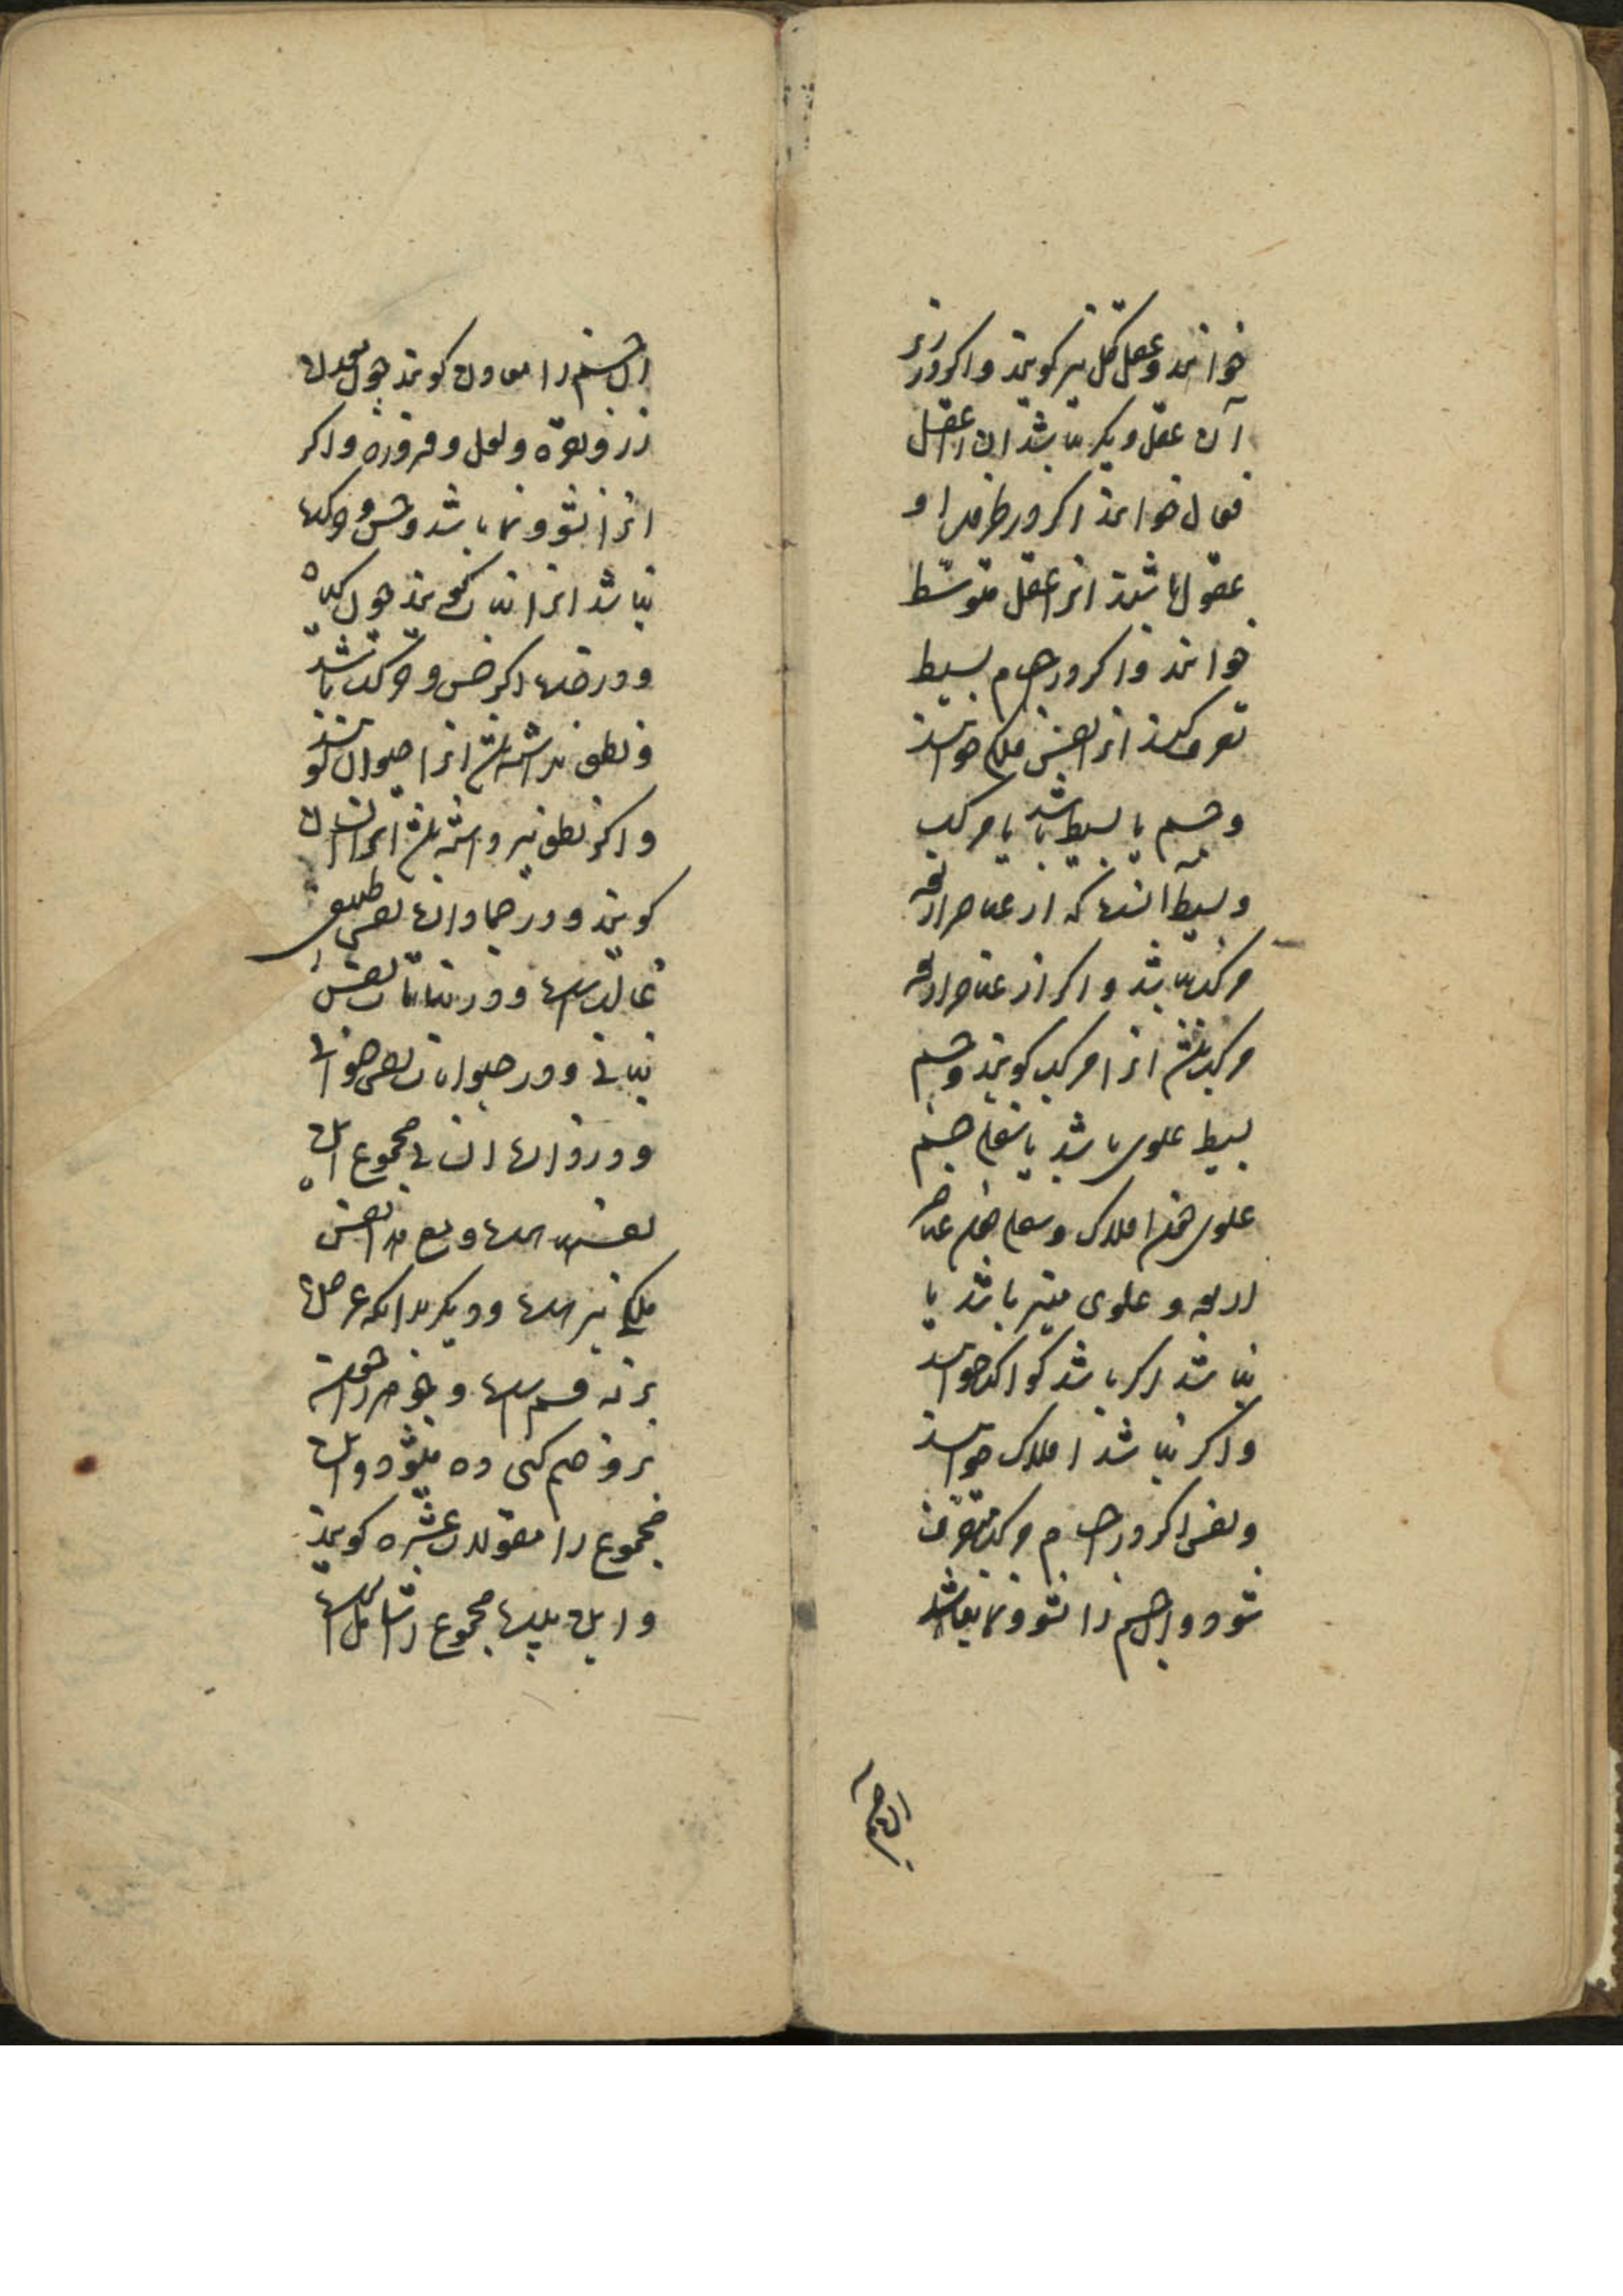 خوانند و عقل کل نیز گویند و اگر در زیر
آن عقل دیگر نباشد انرا عقل
فعال خوانند اگر در طرفین او
عقول باشند انرا عقل متوسط
خوانند و اگر در اجسام بسیط
تصرف کنند انرا نفس فلکی خوانند
و جسم یا بسیط باشد یا مرکب
و بسیط آنست که از عناصر اربعه
مرکب نباشد و اگر از عناصر اربعه
مرکب باشد انرا مرکب گویند و جسم
بسیط علوی باشد یا سفلی جسم
علوی همچون افلاک و سفلی همچون عناصر
اربعه و علوی منیر باشد یا
نباشد اگر باشد کواکب خوانند
و اگر نباشد افلاک خوانند
و نفس اگر در اجسام مرکب متصرف
شود و ان جسم را نشو و نما نباشد
ان جسم را معادن گویند چون معدن
زر و نقره و لعل و فیروزه و اگر
انرا نشو و نما باشد و حس و حرکت
نباشد انرا نبات گویند چون گیاه
و درخت اگر حس و حرکت باشد
و نطق نداشته باشد انرا حیوان گویند
و اگر نطق نیز داشته باشد انرا انسان
گویند و در جمادات نفس طبیعی
غالبست و در نباتات نفس
نباتی و در حیوانات نفس حیوانی
و در انسان انسانی مجموع این
نفسهاست و بعد از نفس
فلکی نیز است و دیگر بدانکه عرض
بر نه قسم است و جوهر را همه
برو ضم کنی ده میشود و این
مجموع را مقولات عشره گویند
و این بیت مجموع را شاملست